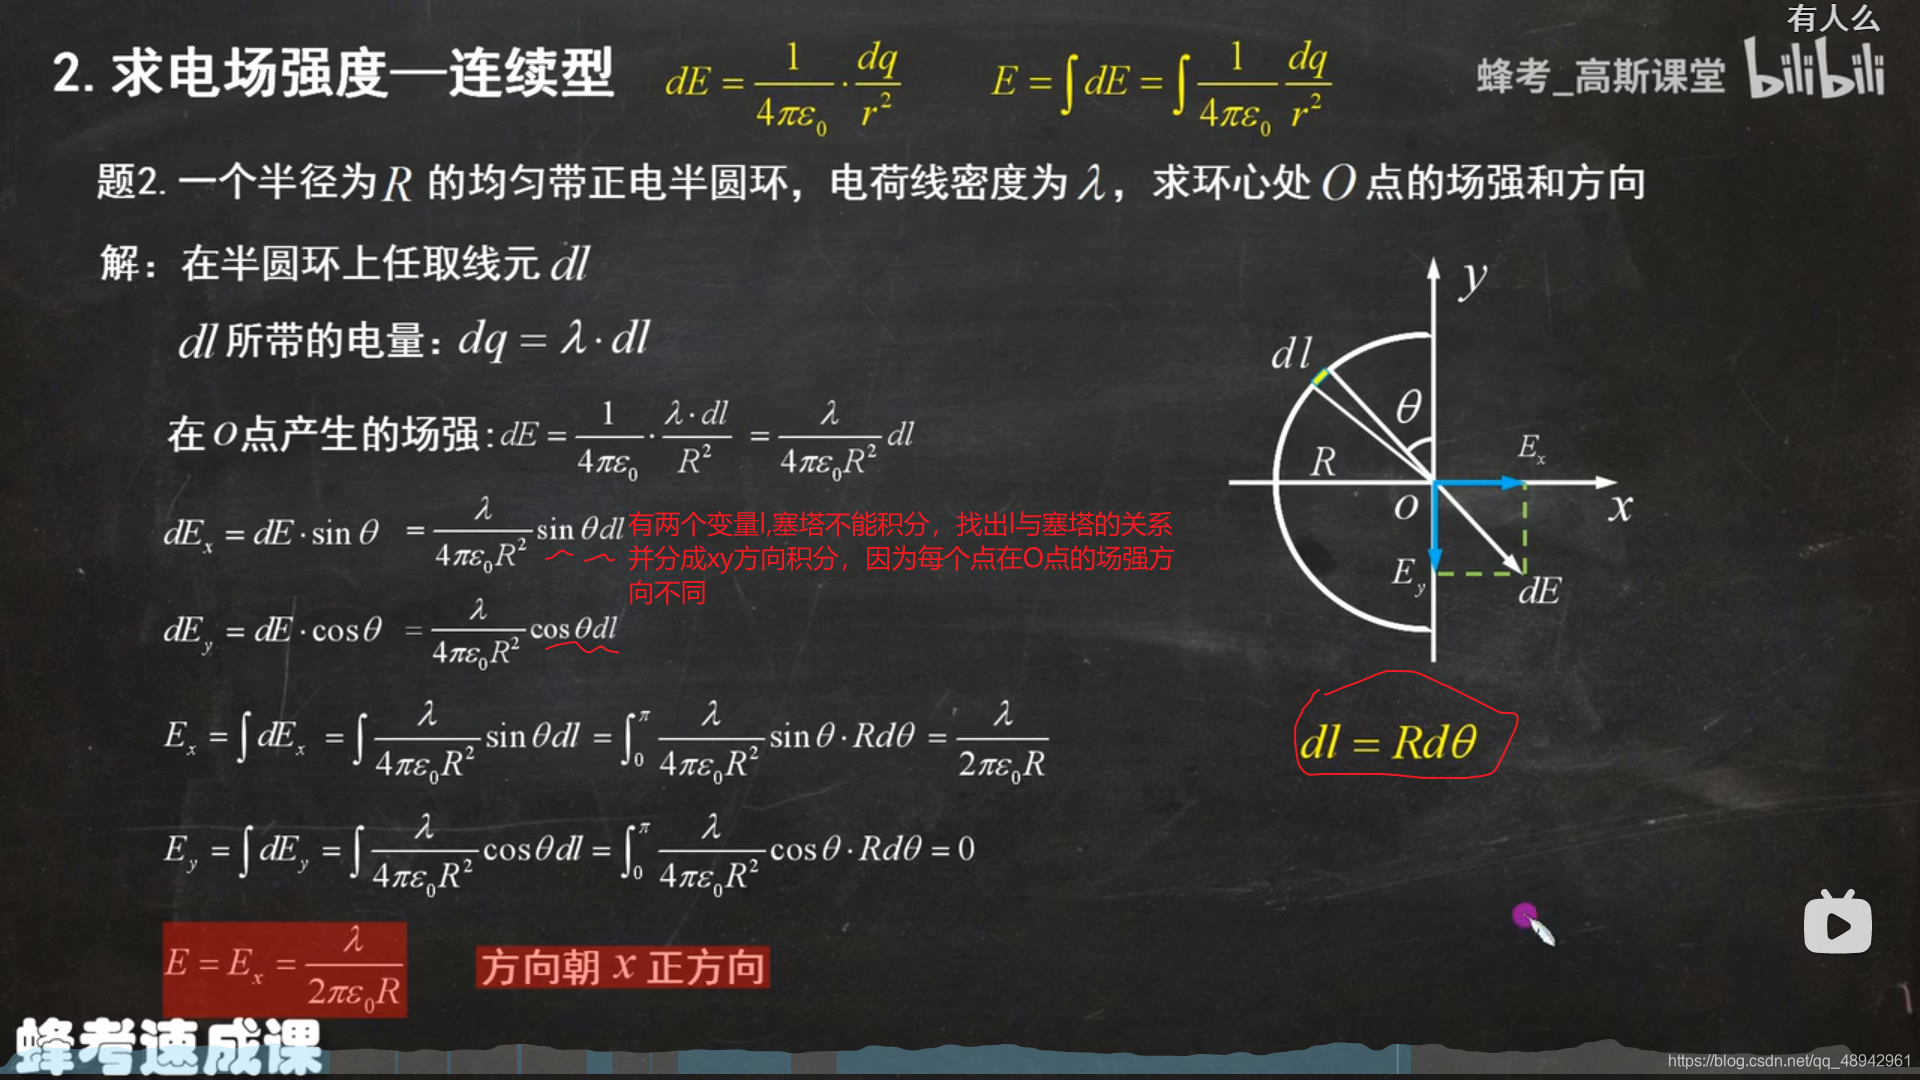 有人么
2. 求电场强度—连续型 dE = 1/4πε₀ · dq/r² E = ∫dE = ∫ 1/4πε₀ dq/r²
蜂考_高斯课堂 bilibili
题2. 一个半径为 R 的均匀带正电半圆环，电荷线密度为 λ，求环心处 O 点的场强和方向
解：在半圆环上任取线元 dl
dl 所带的电量：dq = λ · dl
在 O 点产生的场强：dE = 1/4πε₀ · λ·dl/R² = λ/4πε₀R² dl
dEₓ = dE · sin θ = λ/4πε₀R² sin θdl
有两个变量l,塞塔不能积分，找出l与塞塔的关系
并分成xy方向积分，因为每个点在O点的场强方
向不同
dE_y = dE · cos θ = λ/4πε₀R² cos θdl
Eₓ = ∫dEₓ = ∫ λ/4πε₀R² sin θdl = ∫₀^π λ/4πε₀R² sin θ · Rdθ = λ/2πε₀R
E_y = ∫dE_y = ∫ λ/4πε₀R² cos θdl = ∫₀^π λ/4πε₀R² cos θ · Rdθ = 0
E = Eₓ = λ/2πε₀R
方向朝 x 正方向
y
dl
θ
R
Eₓ
O
x
E_y
dE
dl = Rdθ
蜂考速成课
https://blog.csdn.net/qq_48942961